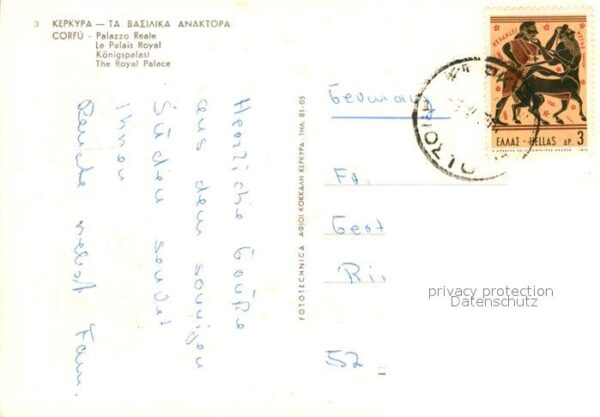 3 ΚΕΡΚΥΡΑ — ΤΑ ΒΑΣΙΛΙΚΑ ΑΝΑΚΤΟΡΑ
CORFÙ - Palazzo Reale
Le Palais Royal
Königspalast
The Royal Palace
Herzliche Grüße
aus dem sonnigen
Süden sendet
Ihnen
nebst Fam.
FOTOTECHNICA ΑΦ/ΟΙ ΚΟΚΚΑΛΗ ΚΕΡΚΥΡΑ - ΤΗΛ. 81-05
Germany
Fa.
Gest
Ri
52
ΕΛΛΑΣ - HELLAS ΔΡ. 3
privacy protection
Datenschutz